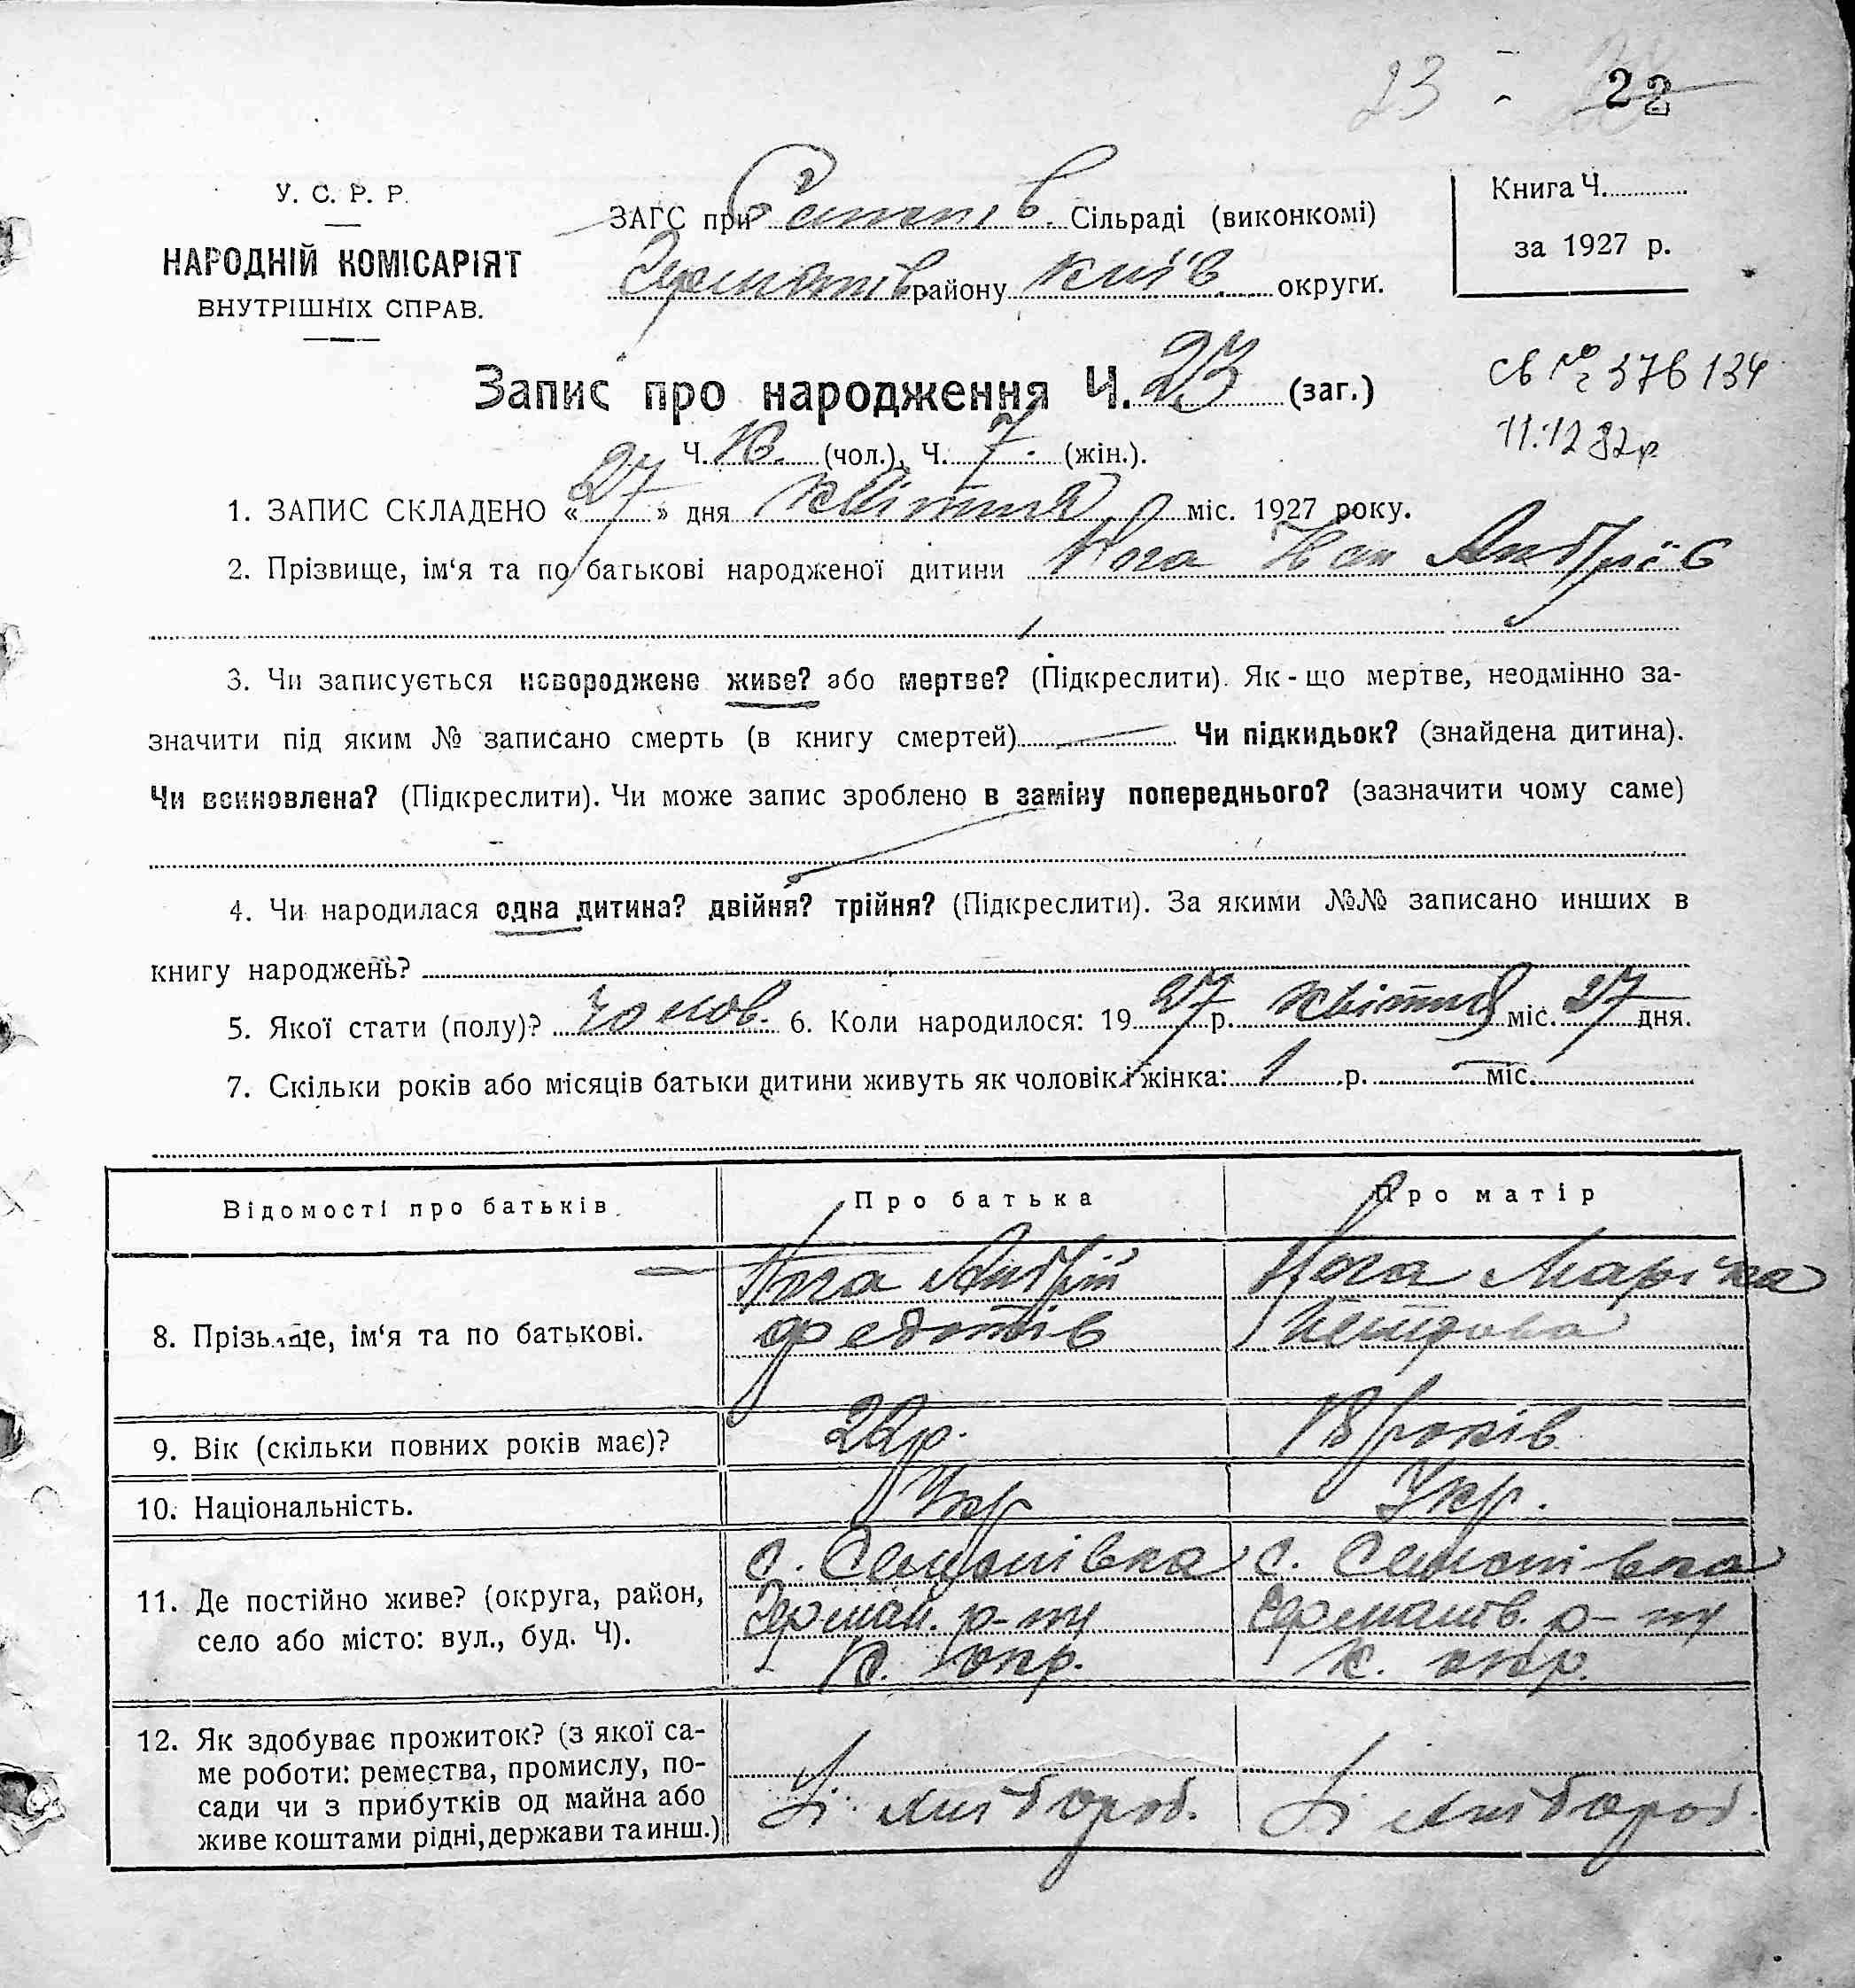 23 - 22
У. С. Р. Р.
НАРОДНІЙ КОМІСАРІЯТ
ВНУТРІШНІХ СПРАВ.
ЗАГС при Сільраді (виконкомі)
Германів району Київ. округи.
Книга Ч.
за 1927 р.
Запис про народження Ч. 23 (заг.)
св № 376134
11.12 82р
Ч. 16. (чол.), Ч. 7. (жін.).
1. ЗАПИС СКЛАДЕНО «27» дня квітня міс. 1927 року.
2. Прізвище, ім‘я та по батькові народженої дитини Нога Іван Андріїв
3. Чи записується новороджене живе? або мертве? (Підкреслити). Як-що мертве, неодмінно за-
значити під яким № записано смерть (в книгу смертей) Чи підкидьок? (знайдена дитина).
Чи всиновлена? (Підкреслити). Чи може запис зроблено в заміну попереднього? (зазначити чому саме)
4. Чи народилася одна дитина? двійня? трійня? (Підкреслити). За якими №№ записано инших в
книгу народжень?
5. Якої стати (полу)? чолов. 6. Коли народилося: 1927 р. квітня міс. 27 дня.
7. Скільки років або місяців батьки дитини живуть як чоловік і жінка: 1 р. — міс.
Відомості про батьків. Про батька Про матір
8. Прізвище, ім‘я та по батькові. Нога Андрій Нога Марійка
Федотів Петрова
9. Вік (скільки повних років має)? 22р. 18 років
10. Національність. Укр Укр.
11. Де постійно живе? (округа, район, село або місто: вул., буд. Ч). с. Семенівка с. Семенівка
Герман. р-ну Германів. р-ну
К. окр. К. окр.
12. Як здобуває прожиток? (з якої са-
ме роботи: ремества, промислу, по-
сади чи з прибутків од майна або
живе коштами рідні, держави та инш.) хлібороб. хлібороб.